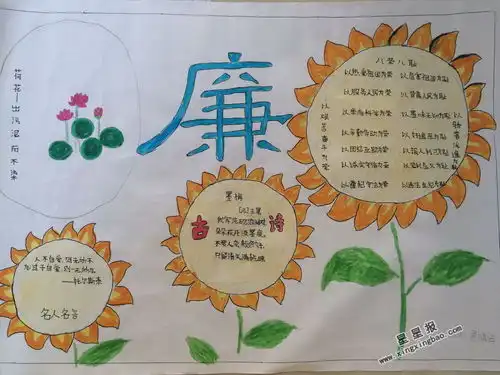 荷花—出污泥而不染
廉
八荣八耻
以热爱祖国为荣 以危害祖国为耻
以服务人民为荣 以背离人民为耻
以崇尚科学为荣 以愚昧无知为耻
以辛勤劳动为荣 以好逸恶劳为耻
以团结互助为荣 以损人利己为耻
以诚实守信为荣 以见利忘义为耻
以遵纪守法为荣 以违法乱纪为耻
以艰苦奋斗为荣
以骄奢淫逸为耻
古诗
墨梅
王冕
只留清气满乾坤
人不自爱
托尔斯泰
名人名言
星星报
www.xingxingbao.com